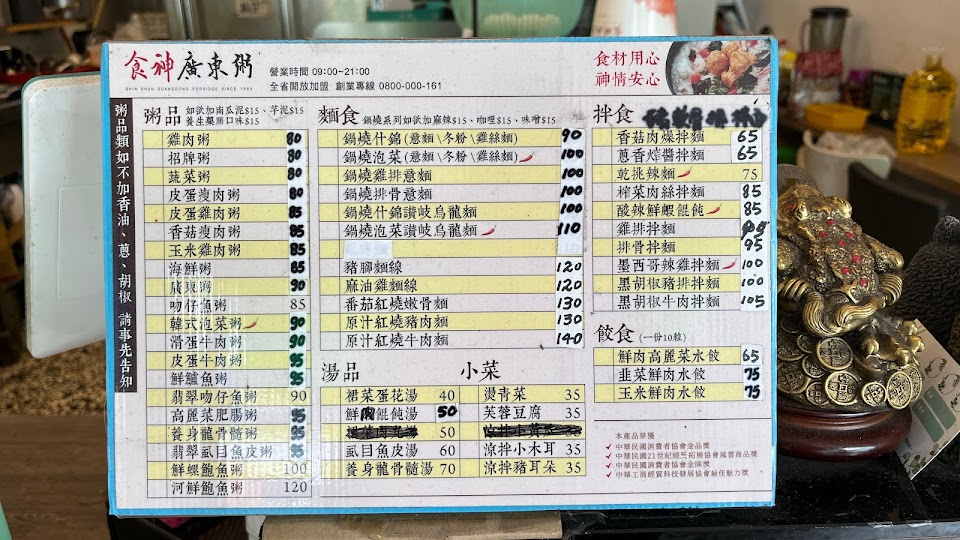 食神廣東粥
SHIN SHUN GUANGDONG PORRIDGE SINCE 1984
營業時間 09:00~21:00
全省開放加盟 創業專線 0800-000-161
食材用心
神情安心
粥品類如不加香油、蔥、胡椒 請事先告知
粥品 如欲加南瓜泥$15、芋泥$15
養生藥膳口味$15
雞肉粥 80
招牌粥 80
蔬菜粥 80
皮蛋瘦肉粥 80
皮蛋雞肉粥 85
香菇瘦肉粥 85
玉米雞肉粥 85
海鮮粥 85
廣東粥 90
吻仔魚粥 85
韓式泡菜粥 90
滑蛋牛肉粥 90
皮蛋牛肉粥 95
鮮鱸魚粥 95
翡翠吻仔魚粥 90
高麗菜肥腸粥 95
養身龍骨髓粥 95
翡翠虱目魚皮粥 95
鮮蜆魚粥 100
河鮮鮑魚粥 120
麵食 鍋燒系列如欲加麻辣$15、咖哩$15、味噌$15
鍋燒什錦(意麵\冬粉\雞絲麵) 90
鍋燒泡菜(意麵\冬粉\雞絲麵) 100
鍋燒雞排意麵 100
鍋燒排骨意麵 100
鍋燒什錦讚岐烏龍麵 100
鍋燒泡菜讚岐烏龍麵 110
豬腳麵線 120
麻油雞麵線 120
番茄紅燒嫩骨麵 130
原汁紅燒豬肉麵 130
原汁紅燒牛肉麵 140
湯品
裙菜蛋花湯 40
鮮肉餛飩湯 50
50
虱目魚皮湯 60
養身龍骨髓湯 70
小菜
燙青菜 35
芙蓉豆腐 35
涼拌小木耳 35
涼拌豬耳朵 35
拌食
香菇肉燥拌麵 65
蔥香炸醬拌麵 65
乾挑辣麵 75
榨菜肉絲拌麵 85
酸辣鮮蝦餛飩 85
雞排拌麵 95
排骨拌麵 95
墨西哥辣雞拌麵 100
黑胡椒豬排拌麵 100
黑胡椒牛肉拌麵 105
餃食 (一份10粒)
鮮肉高麗菜水餃 65
韭菜鮮肉水餃 75
玉米鮮肉水餃 75
本產品榮獲
中華民國消費者協會金品獎
中華民國21世紀經貿拓展協會風雲商品獎
中華民國消費者協會金牌獎
中華工商經貿科技發展協會最佳魅力獎